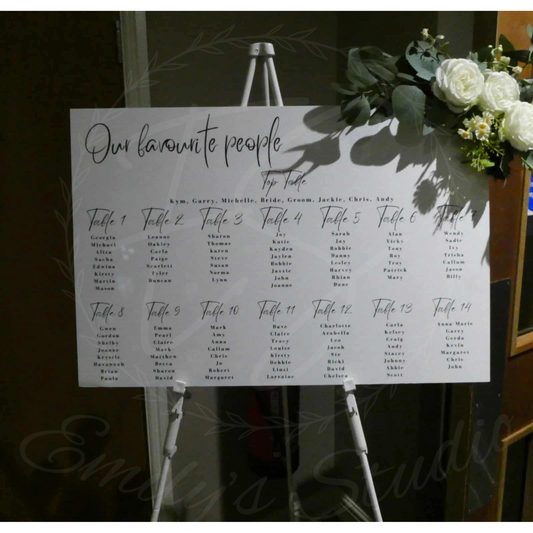 Our favourite people
Top Table
Kym, Garry, Michelle, Bride, Groom, Jackie, Chris, Andy
Table 1
Georgia
Michael
Allen
Sacha
Edwina
Kirsty
Martin
Mason
Table 2
Leanne
Oakley
Carla
Paige
Scarlett
Tyler
Duncan
Table 3
Sharon
Thomas
Karen
Steve
Susan
Norma
Lynn
Table 4
Joy
Kasie
Kayden
Jaylen
Bobbie
Jaysie
John
Joanne
Table 5
Sarah
Jay
Bobbie
Danny
Lesley
Harvey
Rhian
Dane
Table 6
Alan
Vicky
Tony
Roy
Troy
Patrick
Mary
Table 7
Wendy
Sadie
Ivy
Trisha
Callum
Jason
Billy
Table 8
Gwen
Gordon
Shelby
Joanne
Krystle
Savannah
Brian
Paula
Table 9
Emma
Pearl
Claire
Mark
Matthew
Becca
Sharon
David
Table 10
Mark
Amy
Anna
Callum
Chris
Jo
Robert
Margaret
Table 11
Dave
Claire
Tracy
Louise
Kirsty
Debbie
Linzi
Lorraine
Table 12
Charlotte
Arabella
Leo
Jacob
Ste
Ricki
David
Chelsea
Table 13
Carla
Kelsey
Craig
Andy
Stacey
Johnny
Abbie
Scott
Table 14
Anna Marie
Garry
Gerda
Kevin
Margaret
Chris
John
Emily's Studio